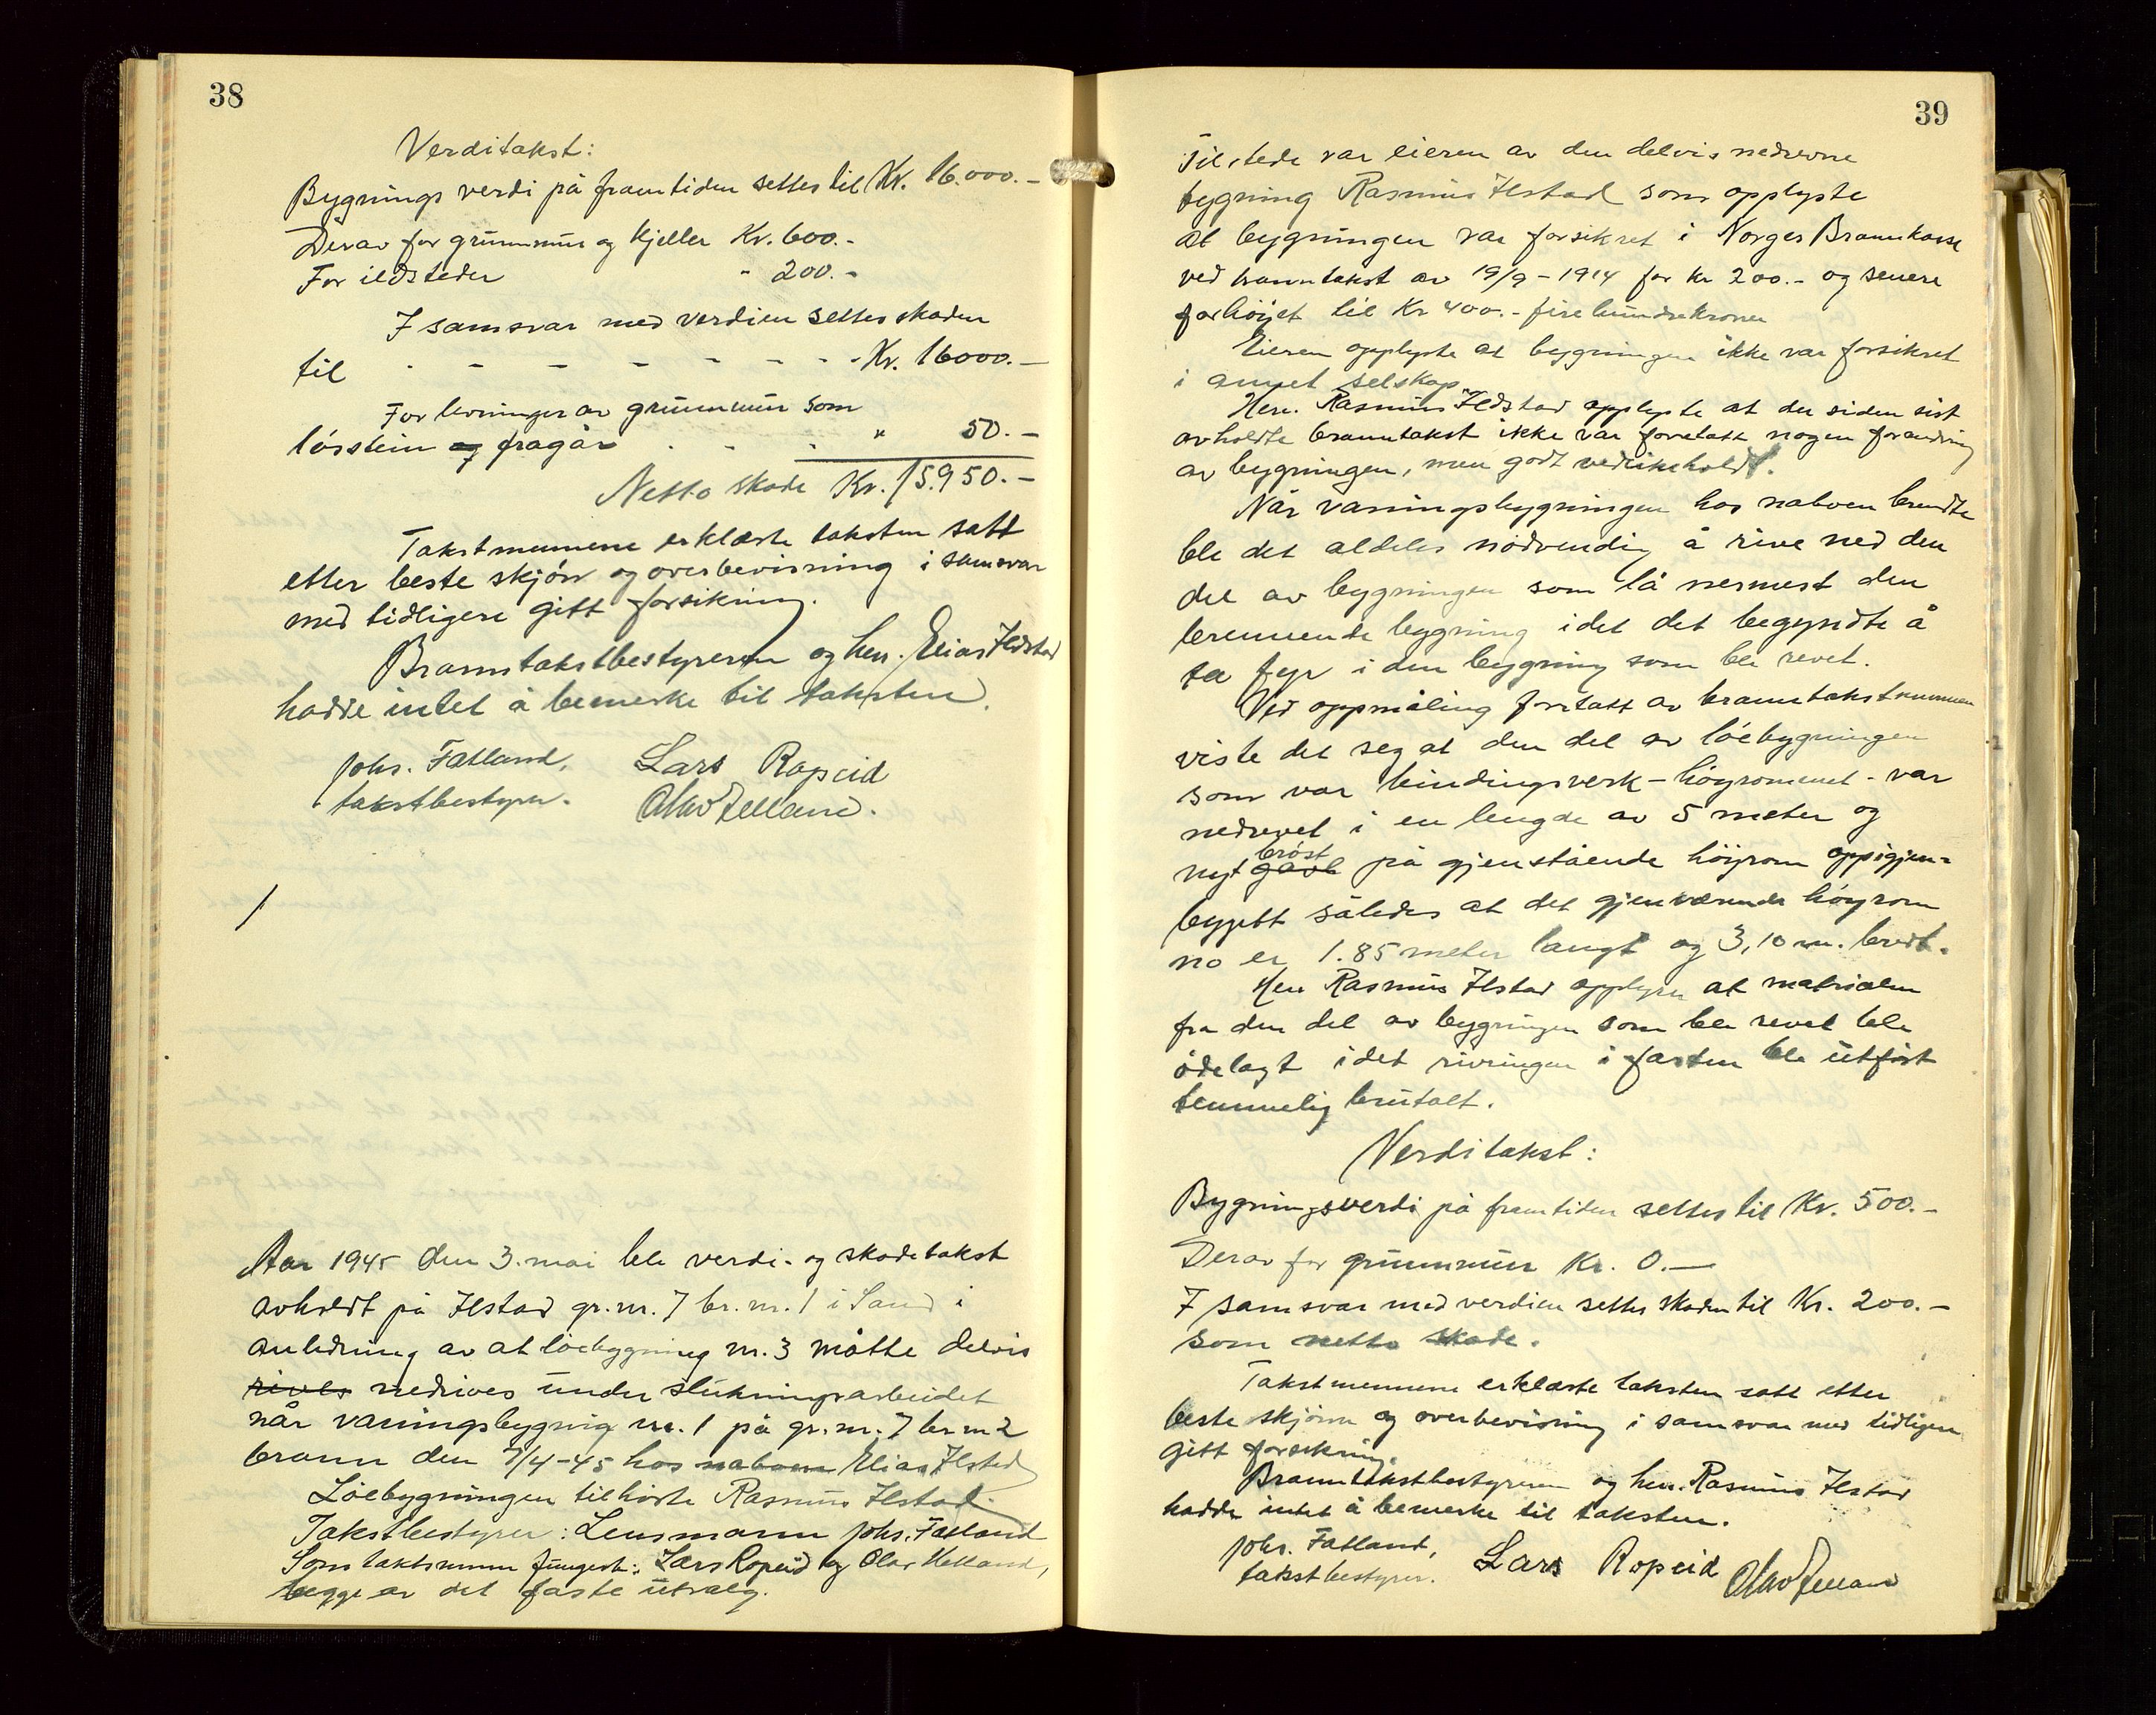 38
Verditakst:
Bygnings verdi på framtiden settes til Kr. 16.000.-
Derav for grunnmur og kjeller Kr. 600.-
For ildsteder - 200.-
I samsvar med verdien settes skaden
til - - - - - - - Kr. 16000.-
For levninger av grunnmur som
løsstein og fragår - - - " 50.-
Netto skade Kr. 15.950.-
Takstmennene erklærte taksten satt
etter beste skjønn og overbevisning i samsvar
med tidligere gitt forsikring.
Branntakstbestyreren og herr. Elias Ilstad
hadde intet å bemerke til taksten.
Johs. Fatland, Lars Ropeid
takstbestyrer. Olav Helland.
Aar 1945 den 3. mai ble verdi- og skadetakst
avholdt på Ilstad gr.nr. 7 br.nr. 1 i Sand i
anledning av at løebygning nr. 3 måtte delvis
rives nedrives under slukningsarbeidet
når våningsbygnig nr. 1 på gr.nr. 7 br nr 2
brann den 7/4-45 hos naboen Elias Ilstad
Løebygningen tilhørte Rasmus Ilstad.
Takstbestyrer: Lensmann Johs. Fatland
Som takstmenn fungerte: Lars Ropeid og Olav Helland,
begge av det faste utvalg.
39
Tilstede var eieren av den delvis nedrevne
bygning Rasmus Ilstad som opplyste
at bygningen var forsikret i Norges Brannkasse
ved branntakst av 19/9-1914 for kr 200.- og senere
forhöyet til Kr 400.- firehundrekroner
Eieren opplyste at bygningen ikke var forsikret
i annet selskap
Herr. Rasmus Ildstad opplyste at der siden sist
avholdte branntakst ikke var foretatt nogen forandring
av bygningen, men godt vedlikeholdt.
Når våningsbygningen hos naboen brendte
ble det aldeles nødvendig å rive ned den
del av bygningen som lå nermest den
brennende bygning idet det begyndte å
ta fyr i den bygning som ble revet.
Ved oppmåling foretatt av branntakstmennene
viste det seg at den del av löebygningen
som var bindingsverk - höyrommet - var
nedrevet i en lengde av 5 meter og
bröst
nyt gavl på gjenstående höyrom oppigjen-
bygett således at det gjenværende höyrom
no er 1.85 meter langt og 3,10 m. bredt.
Herr Rasmus Ilstad opplyser at materialen
fra den del av bygningen som ble revet ble
ödelagt idet rivningen i farten ble utfört
temmelig brutalt.
Verditakst:
Bygningsverdi på framtiden settes til Kr. 500.-
Derav for grunnmur Kr. 0.-
I samsvar med verdien settes skaden til Kr. 200.-
som netto skade.
Takstmennene erklærte taksten satt etter
beste skjønn og overbevisning i samsvar med tidligere
gitt forsikring.
Branntakstbestyreren og herr. Rasmus Ilstad
hadde intet å bemerke til taksten.
Johs. Fatland, Lars Ropeid Olav Helland
takstbestyrer.